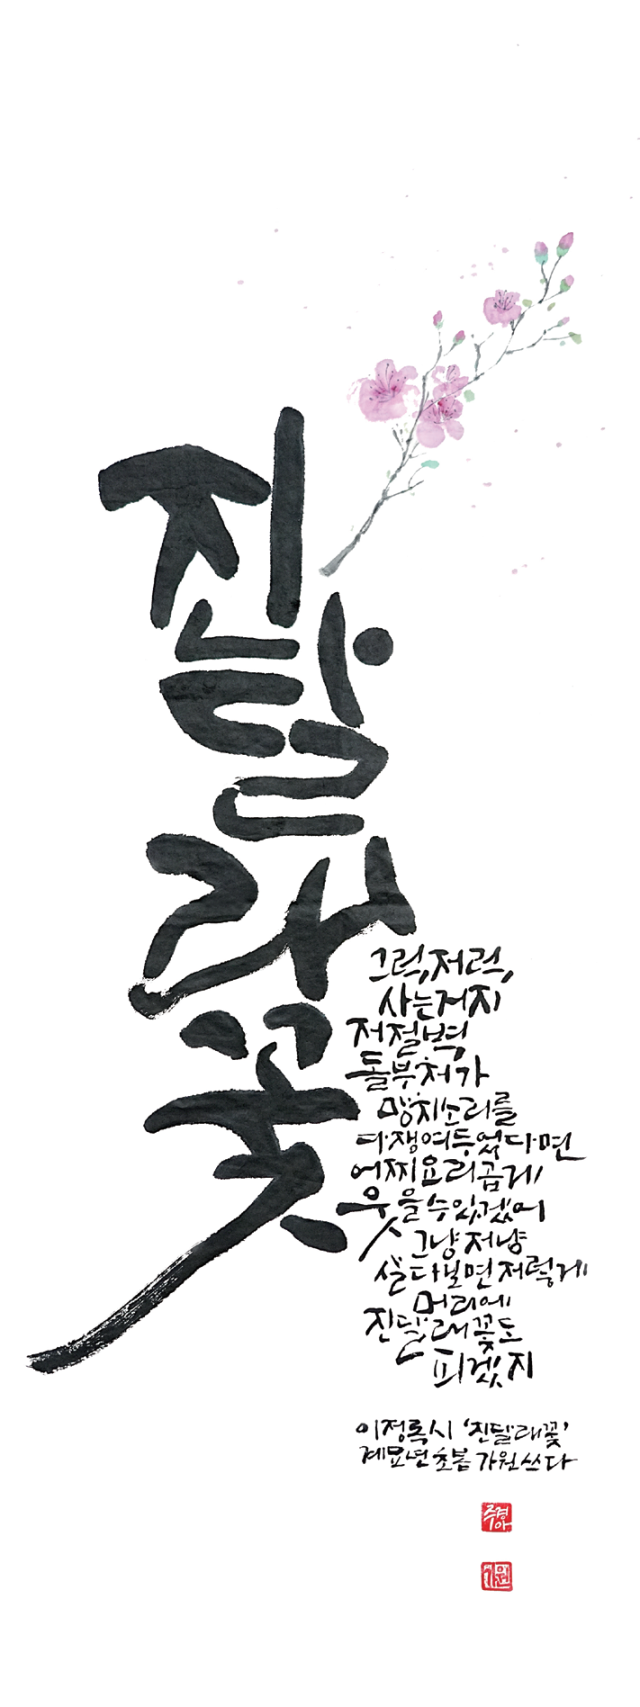 진달래꽃
그럭, 저럭,
사는거지
저 절벽
돌부처가
망치소리를
다 쟁여두었다면
어찌 요리 곱게
웃을 수 있겠어
그냥 저냥
살다보면 저렇게
머리에
진달래꽃도
피겠지
이정록시 '진달래꽃'
계묘년 초봄 가원 쓰다
가원